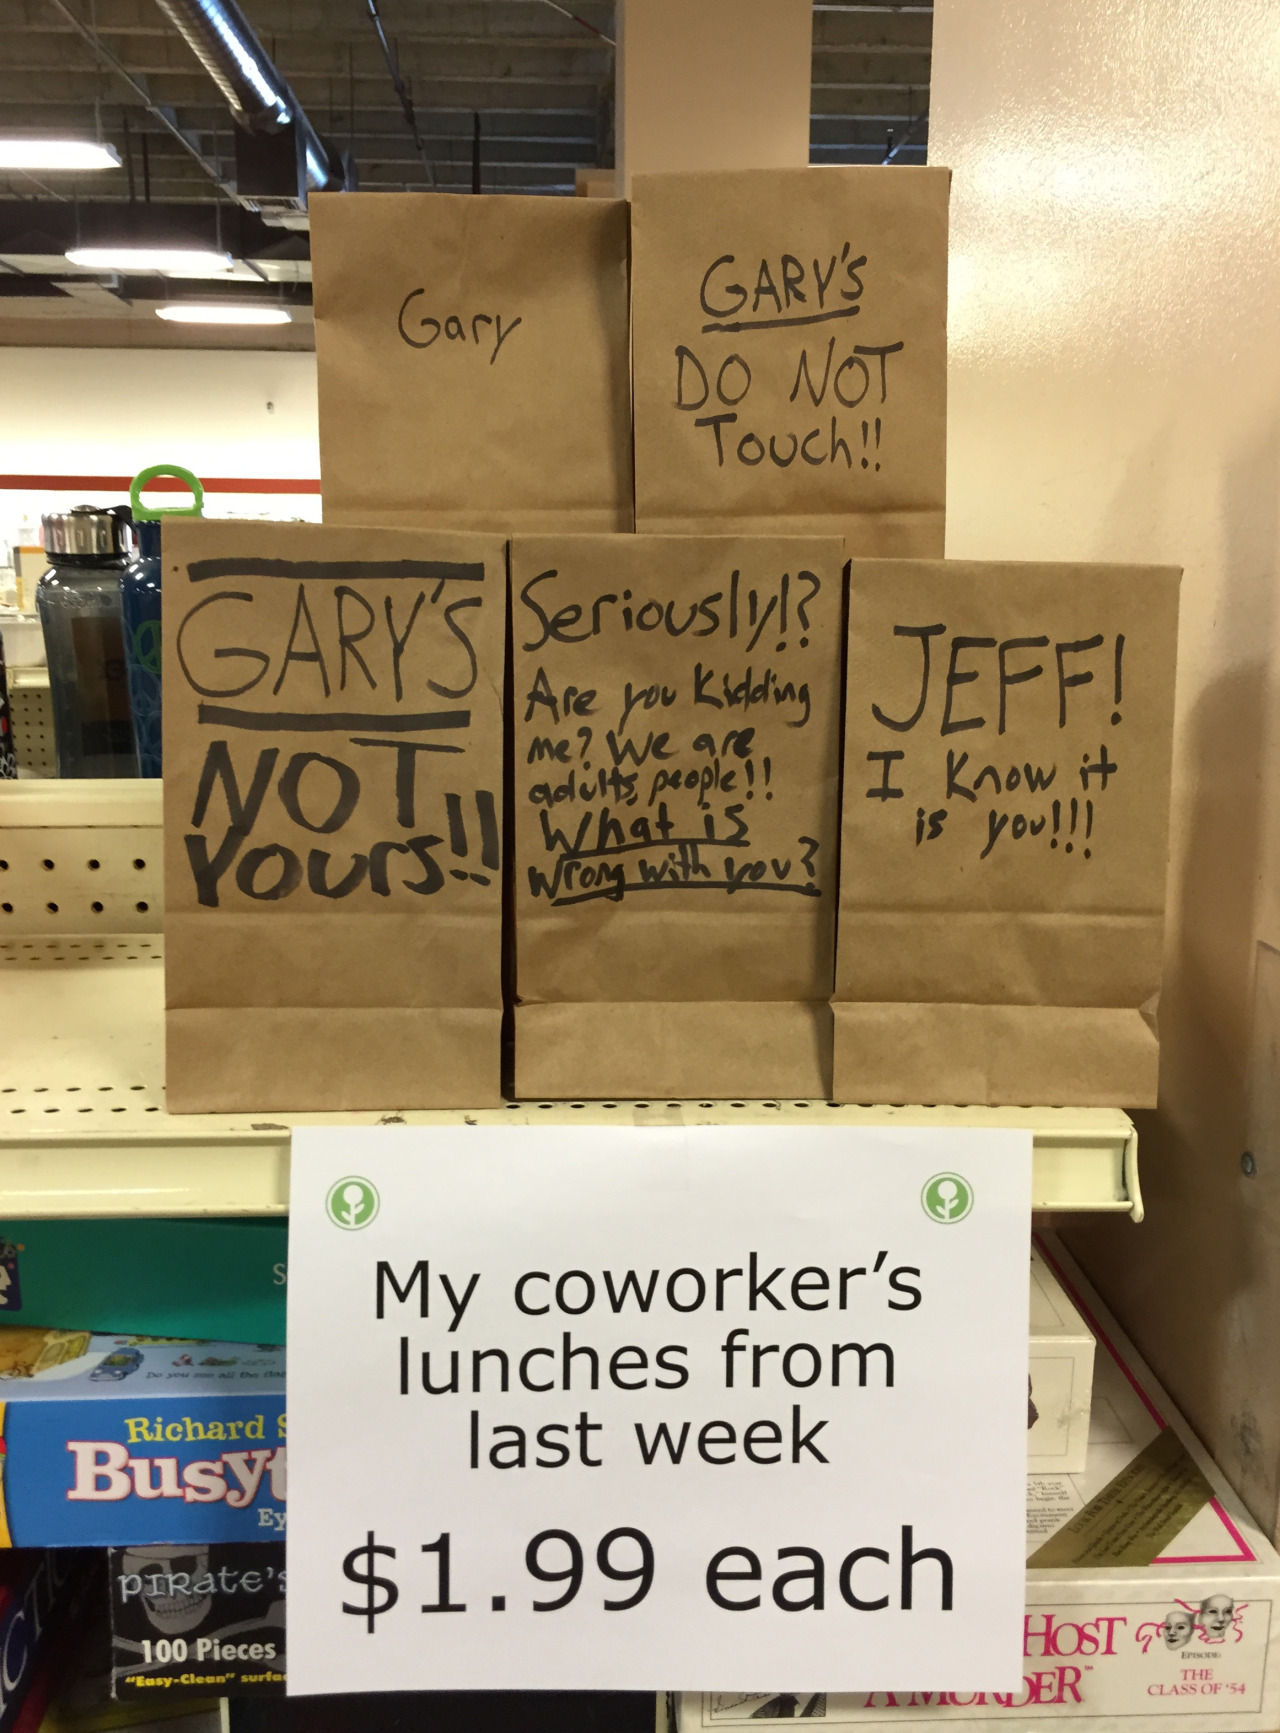 Gary
GARY'S
DO NOT
Touch!!
GARY'S
NOT
Yours!!
Seriously!?
Are you Kidding
me? We are
adults, people!!
What is
Wrong with you?
JEFF!
I Know it
is you!!!
My coworker's
lunches from
last week
$1.99 each
Do you see all the
Richard
Busyt
Ey
PIRate's
100 Pieces
"Easy-Clean" surfa
HOST
A MURDER™
EPISODE:
THE
CLASS OF '54